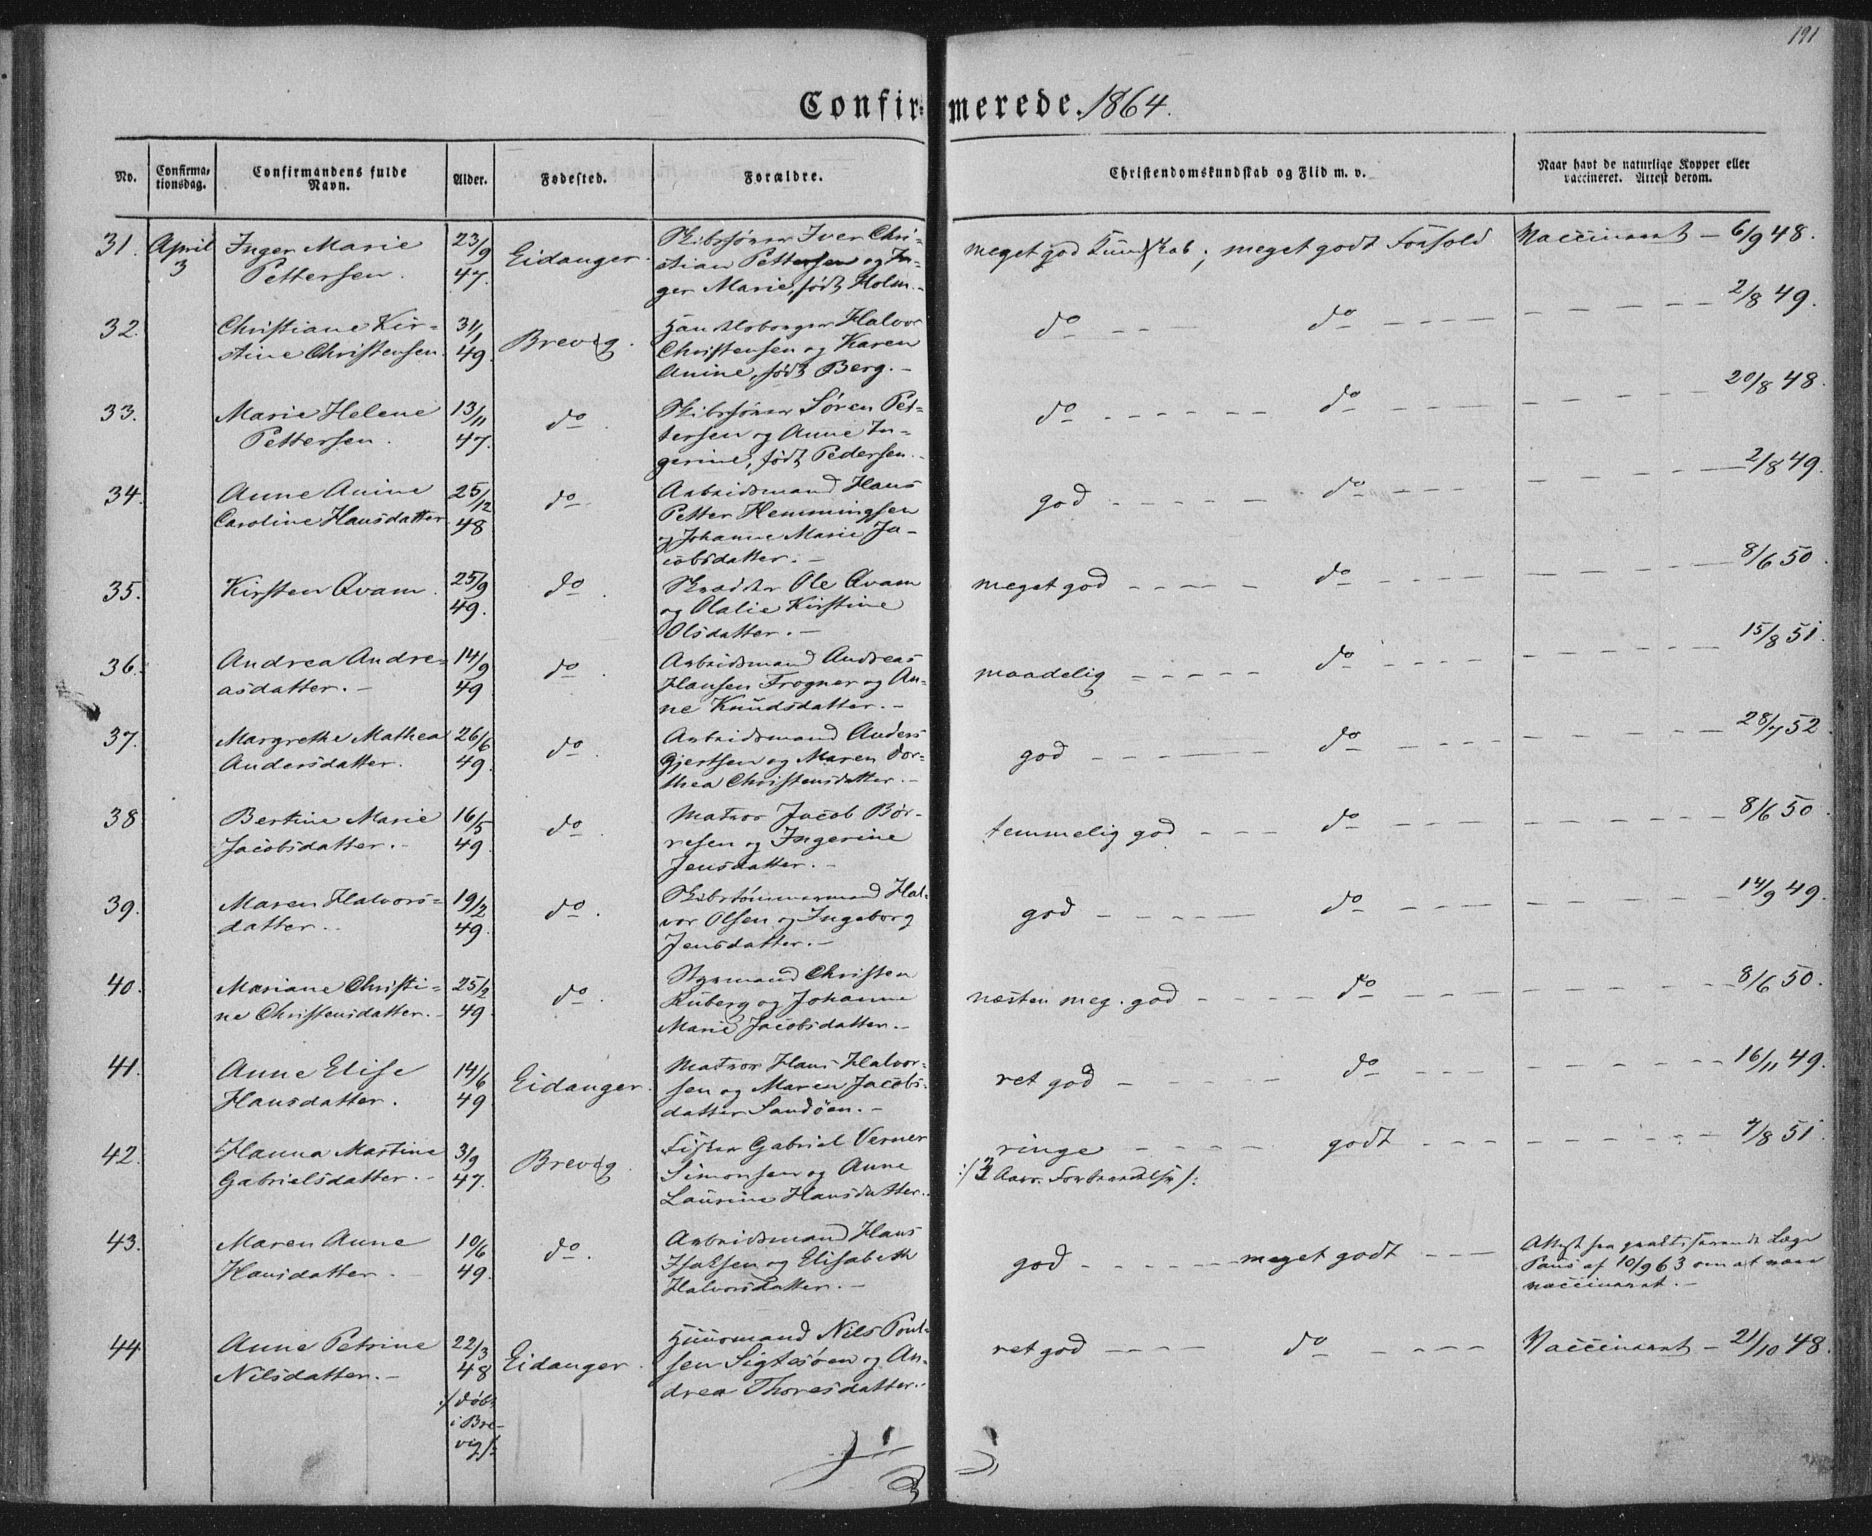 191
Confirmerede. 1864.
No.
Confirma-
tionsdag.
Confirmandens fulde
Navn.
Alder.
Fødested.
Forældre.
Christendomskundskab og Flid m. v.
Naar havt de naturlige Kopper eller
vaccineret. Attest derom.
31. April 3 Inger Marie Pettersen. 23/9 47. Eidanger. Skibsfører Iver Chri-
stian Pettersen og In-
ger Marie, født Holm. -
meget god Kundskab; meget godt Forhold Vaccineret - 6/9 48.
32. Christiane Kir-
stine Christensen 31/1 49. Brevig. Halvor
Christensen og Karen
Anine, født Berg. -
do do 2/8 49.
33. Marie Helene
Pettersen. 13/11 47. do. Skibsfører Søren Pet-
tersen og Anne In-
gerine, født Pedersen. -
do do 20/8 48.
34. Anne Anine
Caroline Hansdatter 25/12 48 do. Arbeidsmand Hans
Petter Hemmingsen
og Johanne Marie Ja-
cobsdatter. -
god do 2/8 49.
35. Kirsten Qvam. 25/9 49. do. Skrædder Ole Qvam
og Olalie Kirstine
Olsdatter. -
meget god do 8/6 50.
36. Andrea Andre-
asdatter. - 14/9 49 do. Arbeidsmand Andreas
Hansen Frogner og An-
ne Knudsdatter. -
maadelig do 15/8 51.
37. Margrethe Mathea
Andersdatter. 26/6 49. do. Arbeidsmand Anders
Gjertsen og Maren Dor-
thea Christensdatter. -
god do 28/7 52.
38 Bertine Marie
Jacobsdatter. - 16/5 49. do. Matros Jacob Bør-
resen og Ingerine
Jensdatter. -
temmelig god do 8/6 50.
39. Maren Halvors-
datter. 19/2 49. do. Skibstømmermand Hal-
vor Olsen og Ingeborg
Jensdatter. -
god do 14/9 49.
40. Mariane Christi-
ne Christensdatter. - 25/2 49. do. Styrmand Christen
Kuberg og Johanne
Marie Jacobsdatter. -
næsten meg. god do 8/6 50.
41. Anne Elise
Hansdatter. 14/6 49 Eidanger. Matros Hans Halvor-
sen og Maren Jacobs-
datter Sandøen. -
ret god do 16/11 49.
42. Hanna Martine
Gabrielsdatter. - 3/9 47. Brevig. Fisker Gabriel Verner
Simonsen og Anne
Laurine Hansdatter.
ringe godt 7/8 51.
43. Maren Anne
Hansdatter. 10/6 49. do. Arbeidsmand Hans
Isaksen og Elisabeth
Halvorsdatter. -
god meget godt Attest fra practiserende Læge
Paus af 10/9 63 om at være
vaccineret. -
44 Anne Petrine
Nilsdatter. - 22/3 48 Eidanger. Huusmand Nils Poul-
sen Sigtesøen og An-
drea Thoresdatter.
ret god do Vaccineret - 21/10 48.
:/ døbt
i Bre-
vig /: